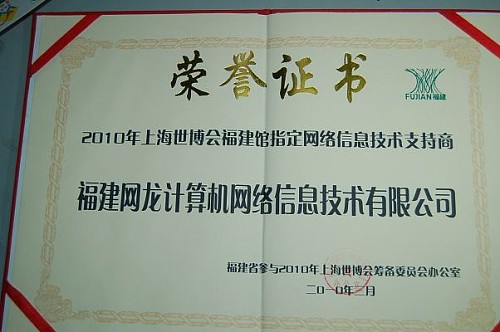 荣誉证书
FUJIAN福建
2010年上海世博会福建馆指定网络信息技术支持商
福建网龙计算机网络信息技术有限公司
福建省参与2010年上海世博会筹备委员会办公室
二〇一〇年二月